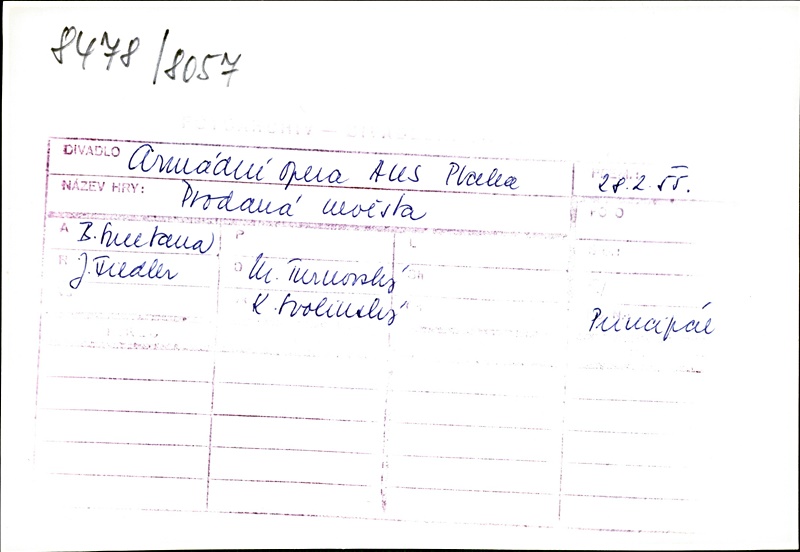 8478/8057
DIVADLO Armádní opera AUS Praha 28.2.55.
NÁZEV HRY: Prodaná nevěsta
A B. Smetana P L
R J. Fiedler O M. Turnovský
K. Svolinský Principál